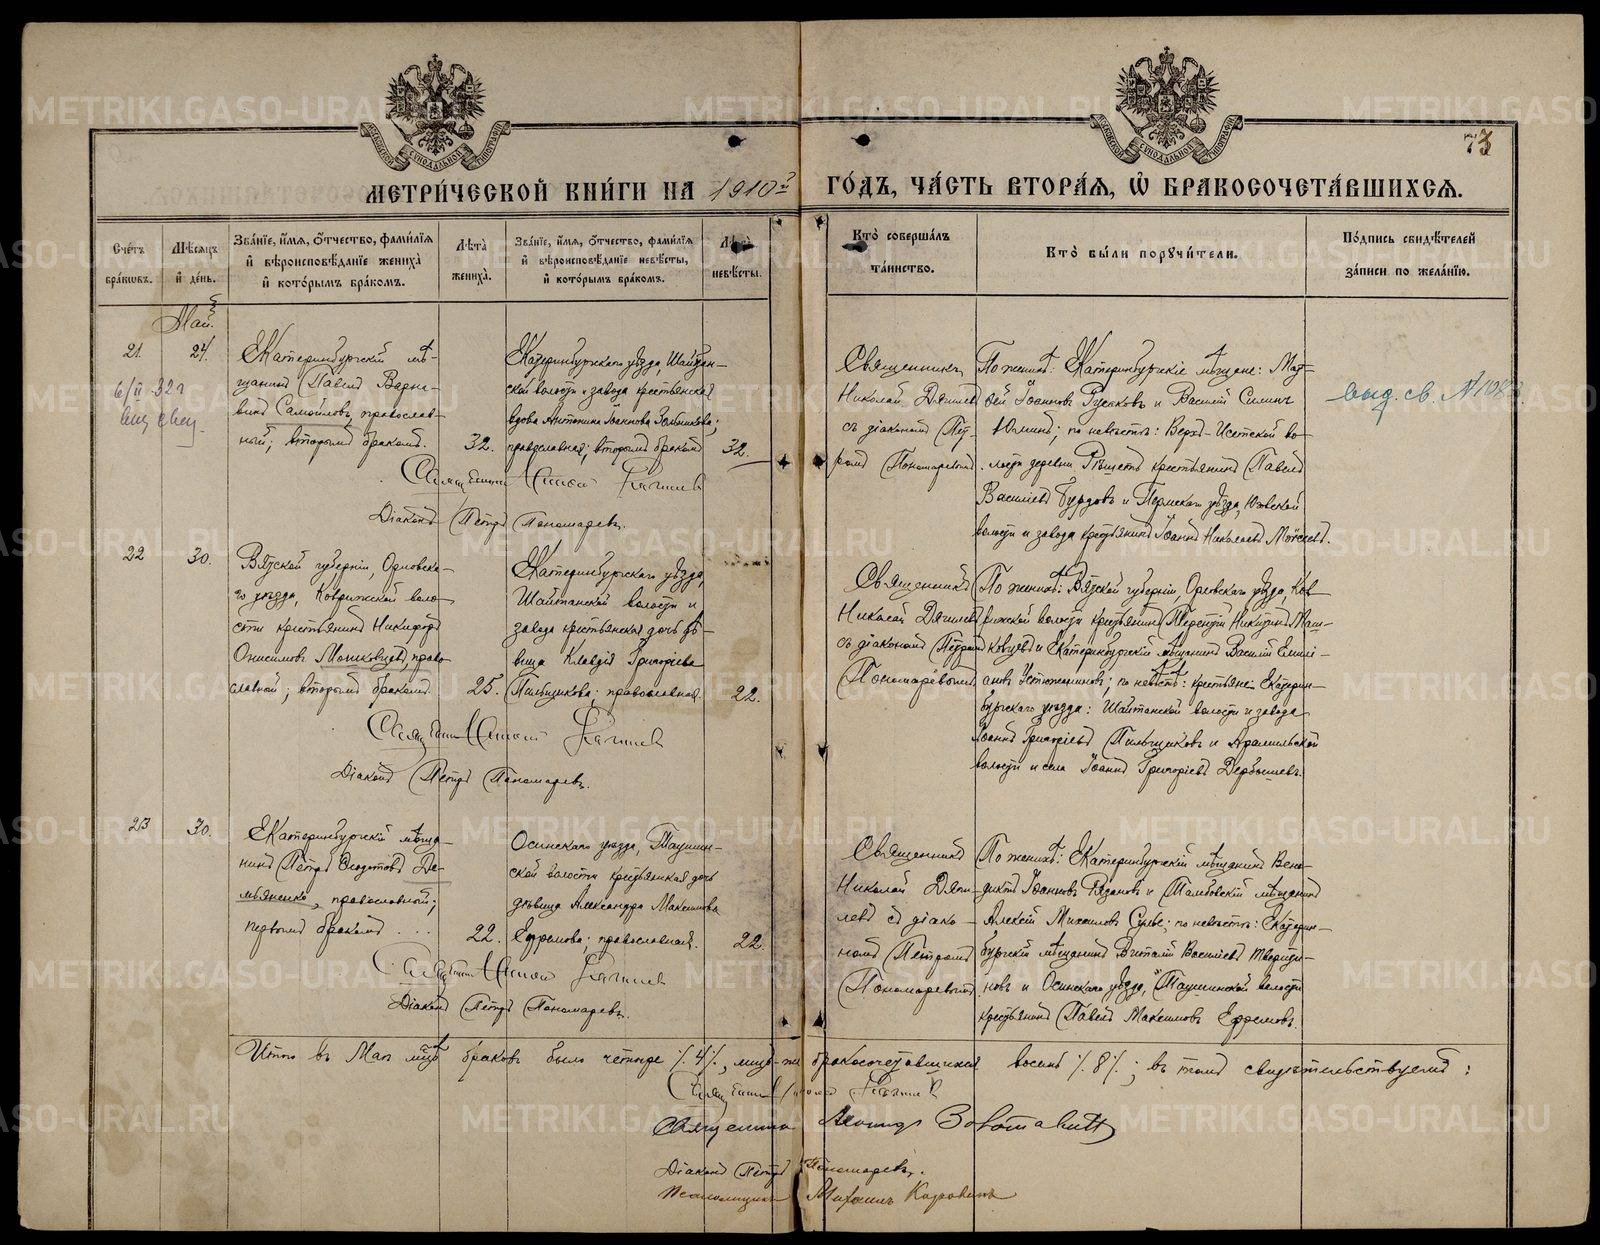 73
МЕТРИ́ЧЕСКОЙ КНИ́ГИ НА 1910 ГО́ДЪ, ЧА́СТЬ ВТОРА́Я, Ѡ҆ БРАКОСОЧЕТА́ВШИХСЯ.
Сче́тъ бра́кѡвъ.
Мѣ́сяцъ и҆ де́нь.
Зва́нїе, и҆́мя, ѻ҆́тчество, фами́лїя и҆ вѣроисповѣ́данїе жениха̀ и҆ кото́рымъ бра́комъ.
Лѣта̀ жениха̀.
Зва́нїе, и҆́мя, ѻ҆́тчество, фами́лїя и҆ вѣроисповѣ́данїе невѣ́сты, и҆ кото́рымъ бра́комъ.
Лѣта̀ невѣ́сты.
Кто̀ соверша́лъ та́инство.
Кто̀ бы́ли порꙋчи́тели.
По́дпись свидѣ́телей за́писи по жела́нїю.
Май.
21.
24.
6/II 32 г
Екатеринбургскій мѣ-
щанинъ Павелъ
Самойловъ, православ-
ный; вторымъ бракомъ.
32.
Екатеринбургскаго уѣзда, Шайтан-
ской волости и завода крестьянская
вдова Антонина Іоаннова
православная; вторымъ бракомъ
32.
Священникъ
Николай Дягилевъ
съ діакономъ Пет-
ромъ Пономаревымъ
По женихѣ: Екатеринбургскіе мѣщане: Мат-
вей Іоанновъ Русаковъ и Василій
по невѣстѣ: Верх-Исетской во-
лости деревни Рѣшетъ крестьянинъ Павелъ
Василіевъ Бурдовъ и Пермскаго уѣзда, Юговской
волости и завода крестьянинъ Іоаннъ Николаевъ
выд. св. №
Священникъ Николай Дягилевъ
Діаконъ Петръ Пономаревъ.
22
30.
Вятской губерніи, Орловска-
го уѣзда, Коврижской воло-
сти крестьянинъ Никифоръ
Онисимовъ Машковцевъ, право-
славной; вторымъ бракомъ.
25.
Екатеринбургскаго уѣзда
Шайтанской волости и
завода крестьянская дочь дѣ-
вица Клавдія Григоріева
Пильщикова; православная
22.
Священникъ
Николай Дягилевъ
съ діакономъ Петромъ
Пономаревымъ
По женихѣ: Вятской губерніи, Орловскаго уѣзда, Ков-
рижской волости крестьянинъ Терентій Никитинъ Маш-
ковцевъ и Екатеринбургскій мѣщанинъ Василій Емилі-
ановъ Устюжаниновъ; по невѣстѣ: крестьяне Екатерин-
бургскаго уѣзда: Шайтанской волости и завода
Іоаннъ Григоріевъ Пильщиковъ и Арамильской
волости и села Іоаннъ Григоріевъ Дербышевъ.
Священникъ Николай Дягилевъ
Діаконъ Петръ Пономаревъ.
23
30.
Екатеринбургскій мѣща-
нинъ Петръ Ѳедотовъ Де-
мьяненко, православной;
первымъ бракомъ . . .
22.
Осинскаго уѣзда, Таушин-
ской волости крестьянская дочь
дѣвица Александра Максимова
Ефремова; православная.
22.
Священникъ
Николай Дяги-
левъ съ діако-
номъ Петромъ
Пономаревымъ
По женихѣ: Екатеринбургскій мѣщанинъ Вене-
диктъ Іоанновъ Рязановъ и Тамбовскій мѣщанинъ
Алексій Михаиловъ по невѣстѣ: Екатерин-
бургскій мѣщанинъ Виталій Василіевъ Твериди-
новъ и Осинскаго уѣзда, Таушинской волости
крестьянинъ Павелъ Максимовъ Ефремовъ.
Священникъ Николай Дягилевъ
Діаконъ Петръ Пономаревъ.
Итого въ Маѣ мѣсяцѣ браковъ было четыре /.4/., лицъ-же бракосочетавшихся восемь /.8/.; въ томъ свидѣтельствуемъ:
Священникъ Николай Дягилевъ
Священникъ Леонидъ
Діаконъ Петръ Пономаревъ.
Псаломщикъ Михаилъ Коровинъ
METRIKI.GASO-URAL.RU